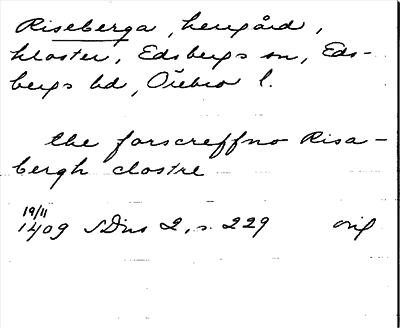 Riseberga, herrgård,
kloster, Edsbergs sn, Eds-
bergs hd, Örebro l.
the forscreffno Risa-
bergh clostre
19/11
1409 SDns 2, s. 229 orig